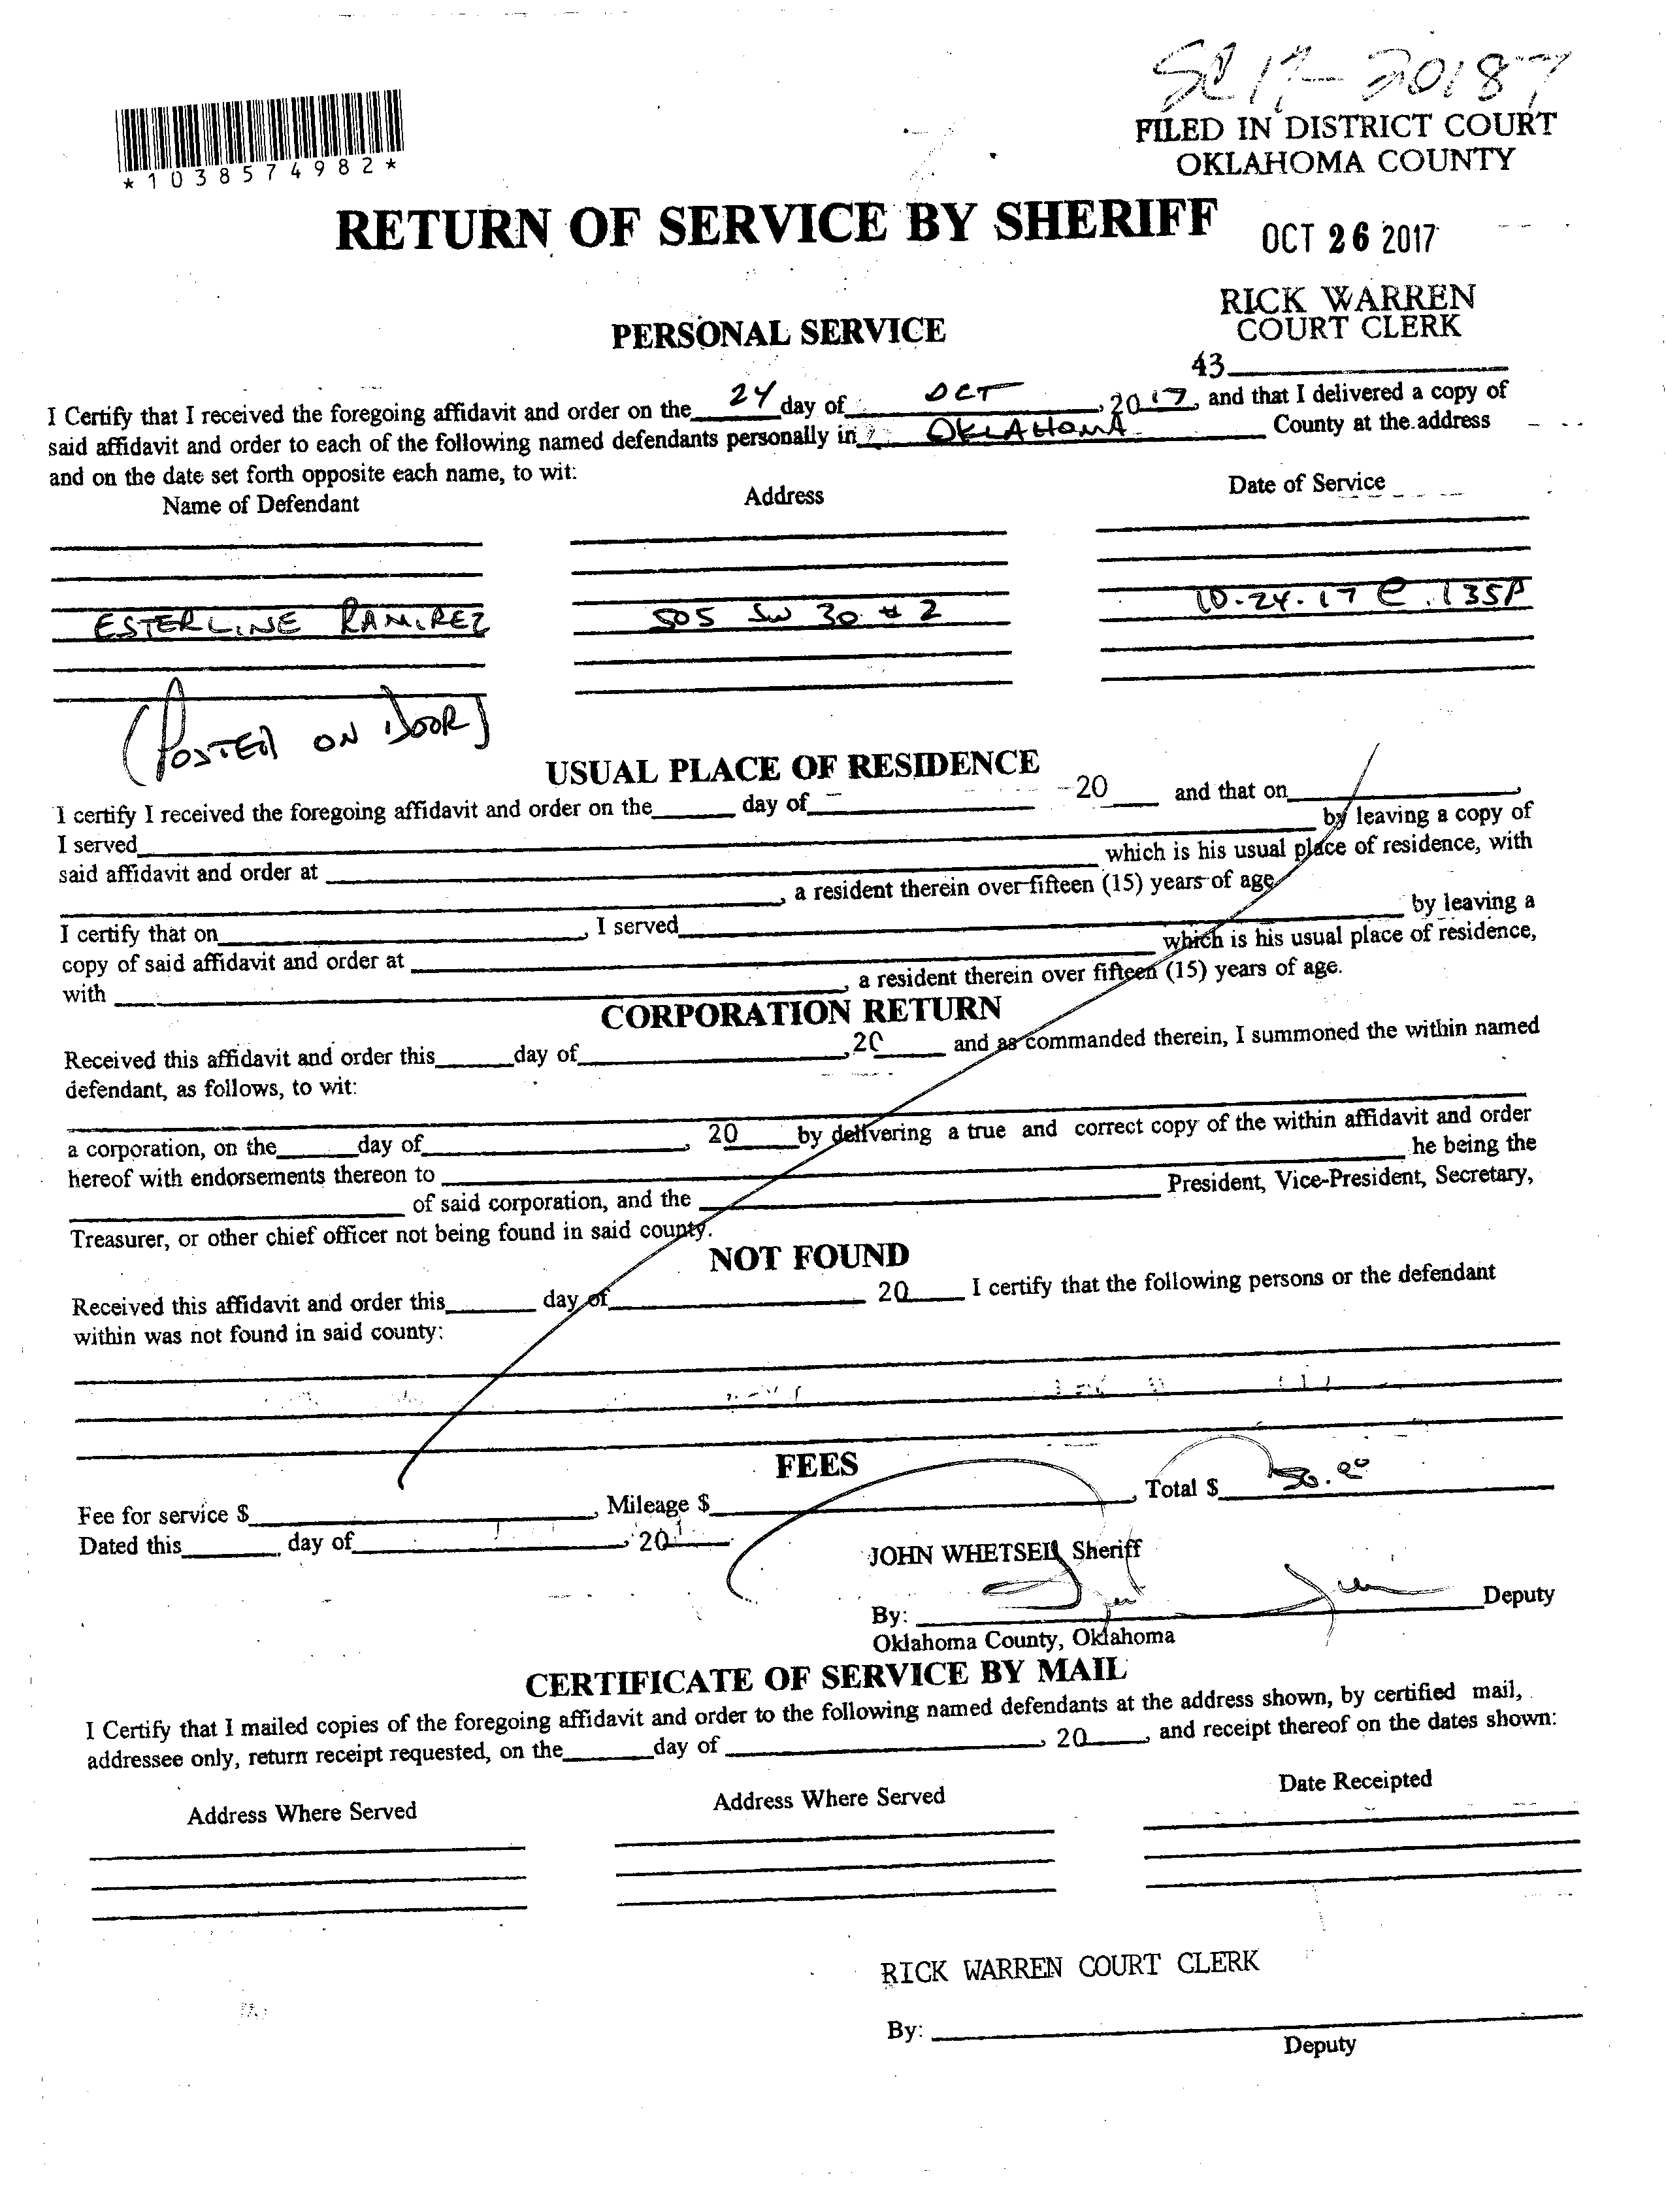 SC 17-20187
*1038574982*
FILED IN DISTRICT COURT
OKLAHOMA COUNTY
RETURN OF SERVICE BY SHERIFF
OCT 26 2017
RICK WARREN
COURT CLERK
43
PERSONAL SERVICE
I Certify that I received the foregoing affidavit and order on the 24 day of OCT, 2017, and that I delivered a copy of
said affidavit and order to each of the following named defendants personally in OKLAHOMA County at the address
and on the date set forth opposite each name, to wit:
Name of Defendant Address Date of Service
ESTERLINE RAMIREZ 505 SW 30 # 2 10-24-17 @ 135P
(POSTED ON DOOR)
USUAL PLACE OF RESIDENCE
I certify I received the foregoing affidavit and order on the ____ day of ____ 20 ____ and that on ____,
I served ____ by leaving a copy of
said affidavit and order at ____ which is his usual place of residence, with
____, a resident therein over fifteen (15) years of age.
I certify that on ____, I served ____ by leaving a
copy of said affidavit and order at ____ which is his usual place of residence,
with ____, a resident therein over fifteen (15) years of age.
CORPORATION RETURN
Received this affidavit and order this ____ day of ____, 20 ____ and as commanded therein, I summoned the within named
defendant, as follows, to wit:
a corporation, on the ____ day of ____, 20 ____ by delivering a true and correct copy of the within affidavit and order
hereof with endorsements thereon to ____ he being the
____ of said corporation, and the ____ President, Vice-President, Secretary,
Treasurer, or other chief officer not being found in said county.
NOT FOUND
Received this affidavit and order this ____ day of ____ 20 ____ I certify that the following persons or the defendant
within was not found in said county:
FEES
Fee for service $ ____, Mileage $ ____, Total $ 50.00
Dated this ____, day of ____, 20 ____
JOHN WHETSEL Sheriff
By: ____ Deputy
Oklahoma County, Oklahoma
CERTIFICATE OF SERVICE BY MAIL
I Certify that I mailed copies of the foregoing affidavit and order to the following named defendants at the address shown, by certified mail,
addressee only, return receipt requested, on the ____ day of ____, 20 ____, and receipt thereof on the dates shown:
Address Where Served Address Where Served Date Receipted
RICK WARREN COURT CLERK
By: ____
Deputy